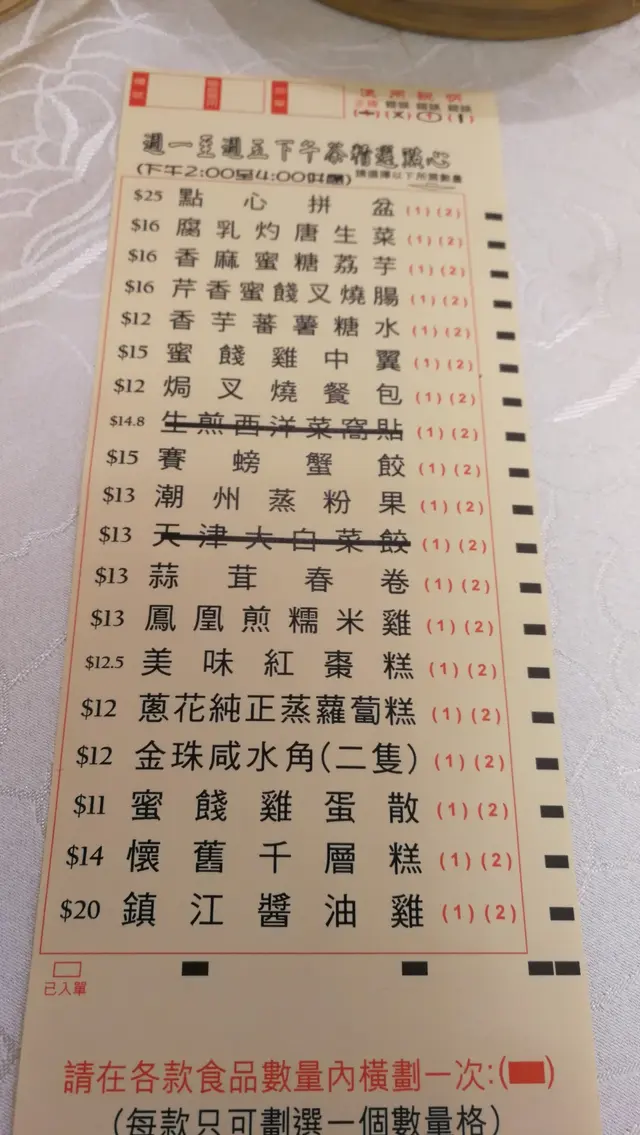 週一至週五下午茶精選點心
(下午2:00至4:00供應) 請選擇以下所需數量
$25 點心拼盆 (1) (2)
$16 腐乳灼唐生菜 (1) (2)
$16 香麻蜜糖荔芋 (1) (2)
$16 芹香蜜餞叉燒腸 (1) (2)
$12 香芋蕃薯糖水 (1) (2)
$15 蜜餞雞中翼 (1) (2)
$12 焗叉燒餐包 (1) (2)
$14.8 生煎西洋菜窩貼 (1) (2)
$15 賽螃蟹餃 (1) (2)
$13 潮州蒸粉果 (1) (2)
$13 天津大白菜餃 (1) (2)
$13 蒜茸春卷 (1) (2)
$13 鳳凰煎糯米雞 (1) (2)
$12.5 美味紅棗糕 (1) (2)
$12 蔥花純正蒸蘿蔔糕 (1) (2)
$12 金珠咸水角(二隻) (1) (2)
$11 蜜餞雞蛋散 (1) (2)
$14 懷舊千層糕 (1) (2)
$20 鎮江醬油雞 (1) (2)
已入單
請在各款食品數量內橫劃一次:( )
(每款只可劃選一個數量格)